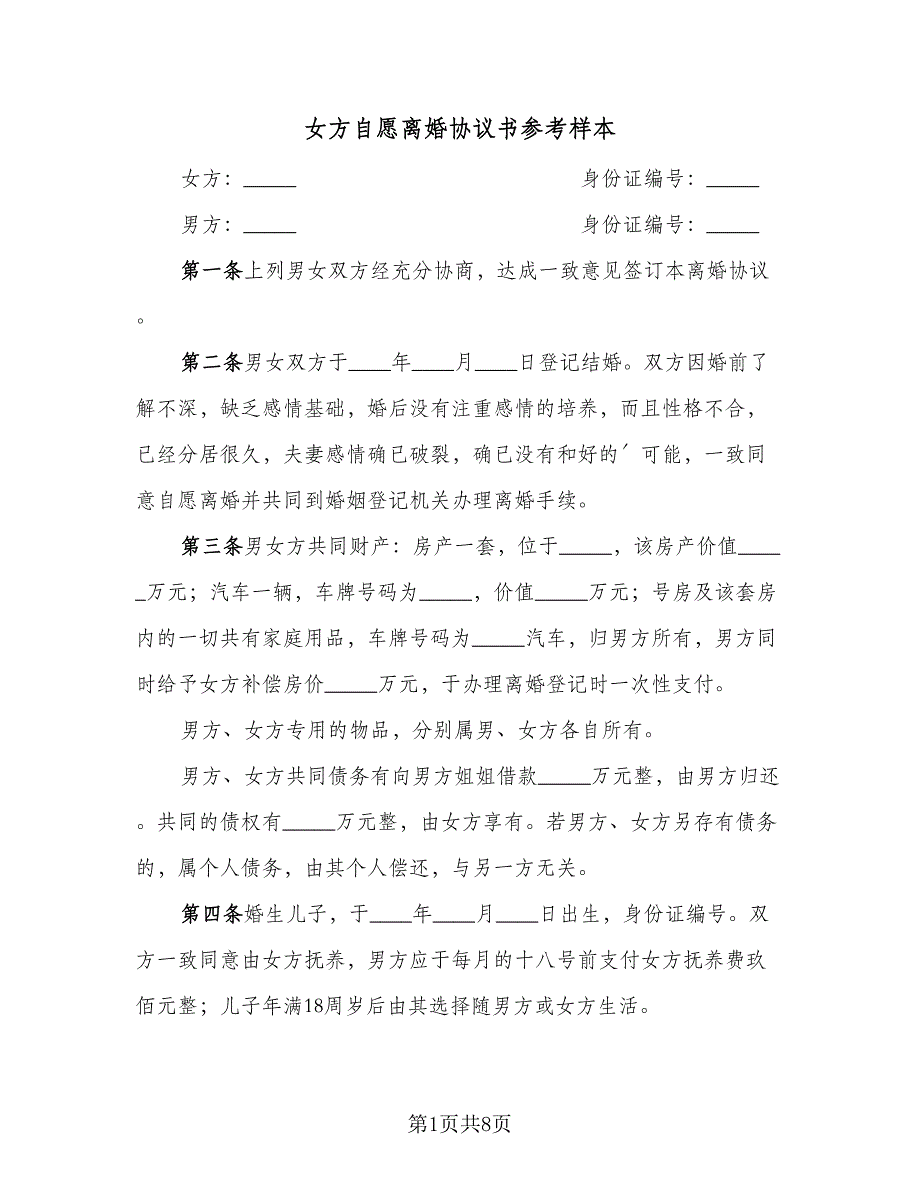 女方自愿离婚协议书参考样本
女方：_____ 身份证编号：_____
男方：_____ 身份证编号：_____
第一条上列男女双方经充分协商，达成一致意见签订本离婚协议
。
第二条男女双方于____年____月____日登记结婚。双方因婚前了
解不深，缺乏感情基础，婚后没有注重感情的培养，而且性格不合，
已经分居很久，夫妻感情确已破裂，确已没有和好的ˊ可能，一致同
意自愿离婚并共同到婚姻登记机关办理离婚手续。
第三条男女方共同财产：房产一套，位于_____，该房产价值____
_万元；汽车一辆，车牌号码为_____，价值_____万元；号房及该套房
内的一切共有家庭用品，车牌号码为_____汽车，归男方所有，男方同
时给予女方补偿房价_____万元，于办理离婚登记时一次性支付。
男方、女方专用的物品，分别属男、女方各自所有。
男方、女方共同债务有向男方姐姐借款_____万元整，由男方归还
。共同的债权有_____万元整，由女方享有。若男方、女方另存有债务
的，属个人债务，由其个人偿还，与另一方无关。
第四条婚生儿子，于____年____月____日出生，身份证编号。双
方一致同意由女方抚养，男方应于每月的十八号前支付女方抚养费玖
佰元整；儿子年满18周岁后由其选择随男方或女方生活。
第1页共8页